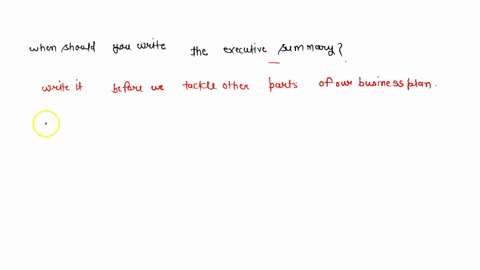 when should you write the executive summary?
write it before we tackle other parts of our business plan.